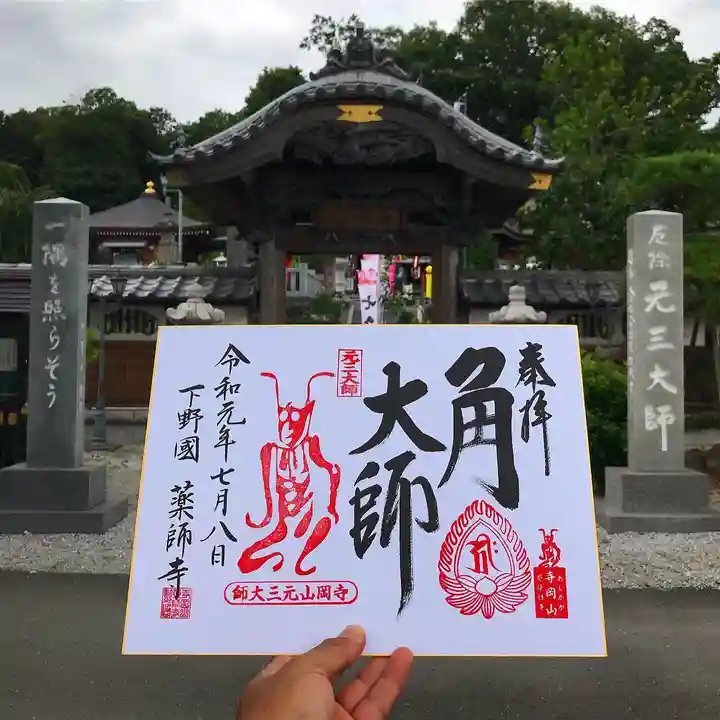 一隅を照らそう
厄除 元三大師
奉拝
角
大師
元三大師
令和元年七月八日
下野國 薬師寺
師大三元山岡寺
寺岡山